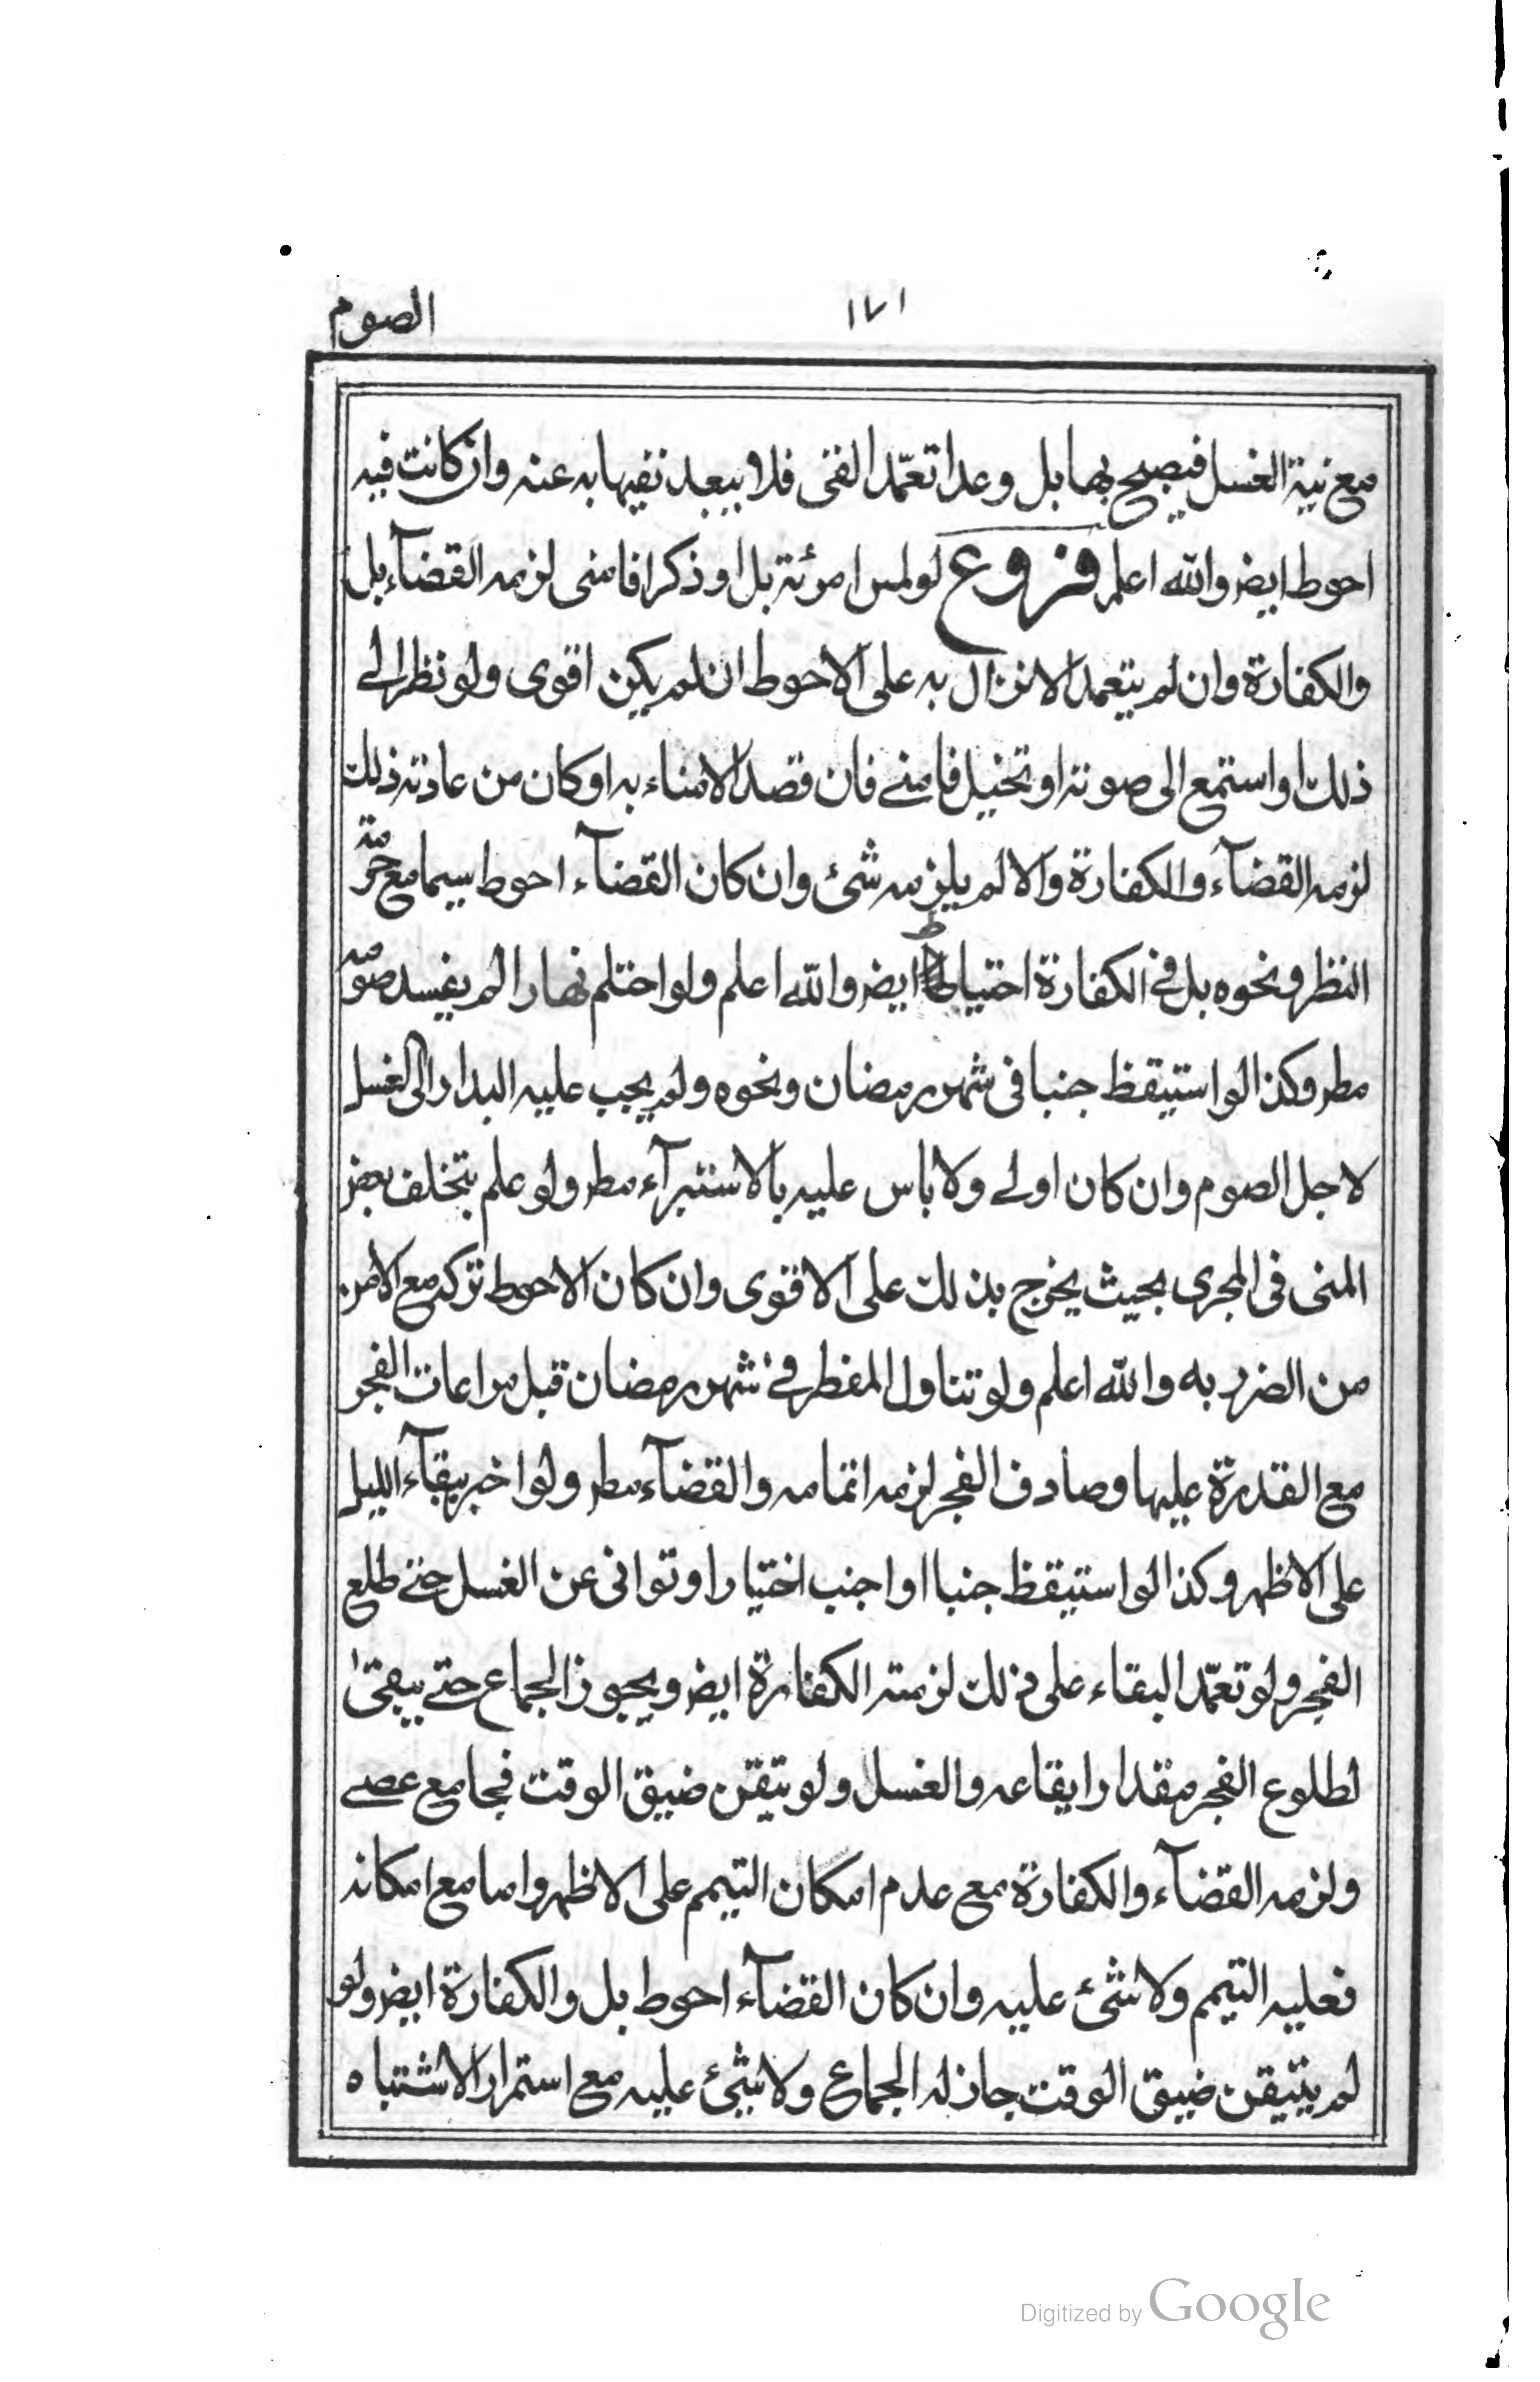 ١٧١
الصوم
مع نية الغسل فيصح بها بل وعدا تعمّد القئ فلا يبعد نفيها به عنه وان كانت فيه
احوط ايضر والله اعلم فروع لو لمس امرئة بل او ذكرا فامنى لزمه القضآء بل
والكفارة وان لم يتعمد الانزال به على الاحوط ان لم يكن اقوى ولو نظر الى
ذلك او استمع الى صوته او تخيل فامنى فان قصد الامناء به او كان من عادته ذلك
لزمه القضآء والكفارة والا لم يلزمه شئ وان كان القضآء احوط سيما مع حرّمة
النظر ونحوه بل في الكفارة احتياط ايضر والله اعلم ولو احتلم نهارا لم يفسد صومه
مطر وكذا لو استيقظ جنبا في شهر رمضان ونحوه ولم يجب عليه البدار الى الغسل
لاجل الصوم وان كان اولى ولا باس عليه بالاستبرآء مطر ولو علم بتخلف بعض
المنى في المجرى بحيث يخرج بذلك على الاقوى وان كان الاحوط تركه مع الامن
من الضرر به والله اعلم ولو تناول المفطر في شهر رمضان قبل مراعات الفجر
مع القدرة عليها وصادف الفجر لزمه اتمامه والقضآء مطر ولو اخبر ببقآء الليل
على الاظهر وكذا لو استيقظ جنبا او اجنب اختيارا وتوانى عن الغسل حتى طلع
الفجر ولو تعمّد البقاء على ذلك لزمته الكفارة ايضر ويجوز الجماع حتى يبقى
لطلوع الفجر مقدار ايقاعه والغسل ولو تيقن ضيق الوقت فجامع عصى
ولزمه القضآء والكفارة مع عدم امكان التيمم على الاظهر واما مع امكانه
فعليه التيمم ولا شئ عليه وان كان القضآء احوط بل والكفارة ايضر ولو
لم يتيقن ضيق الوقت جاز له الجماع ولا شئ عليه مع استمرار الاشتباه
Digitized by Google